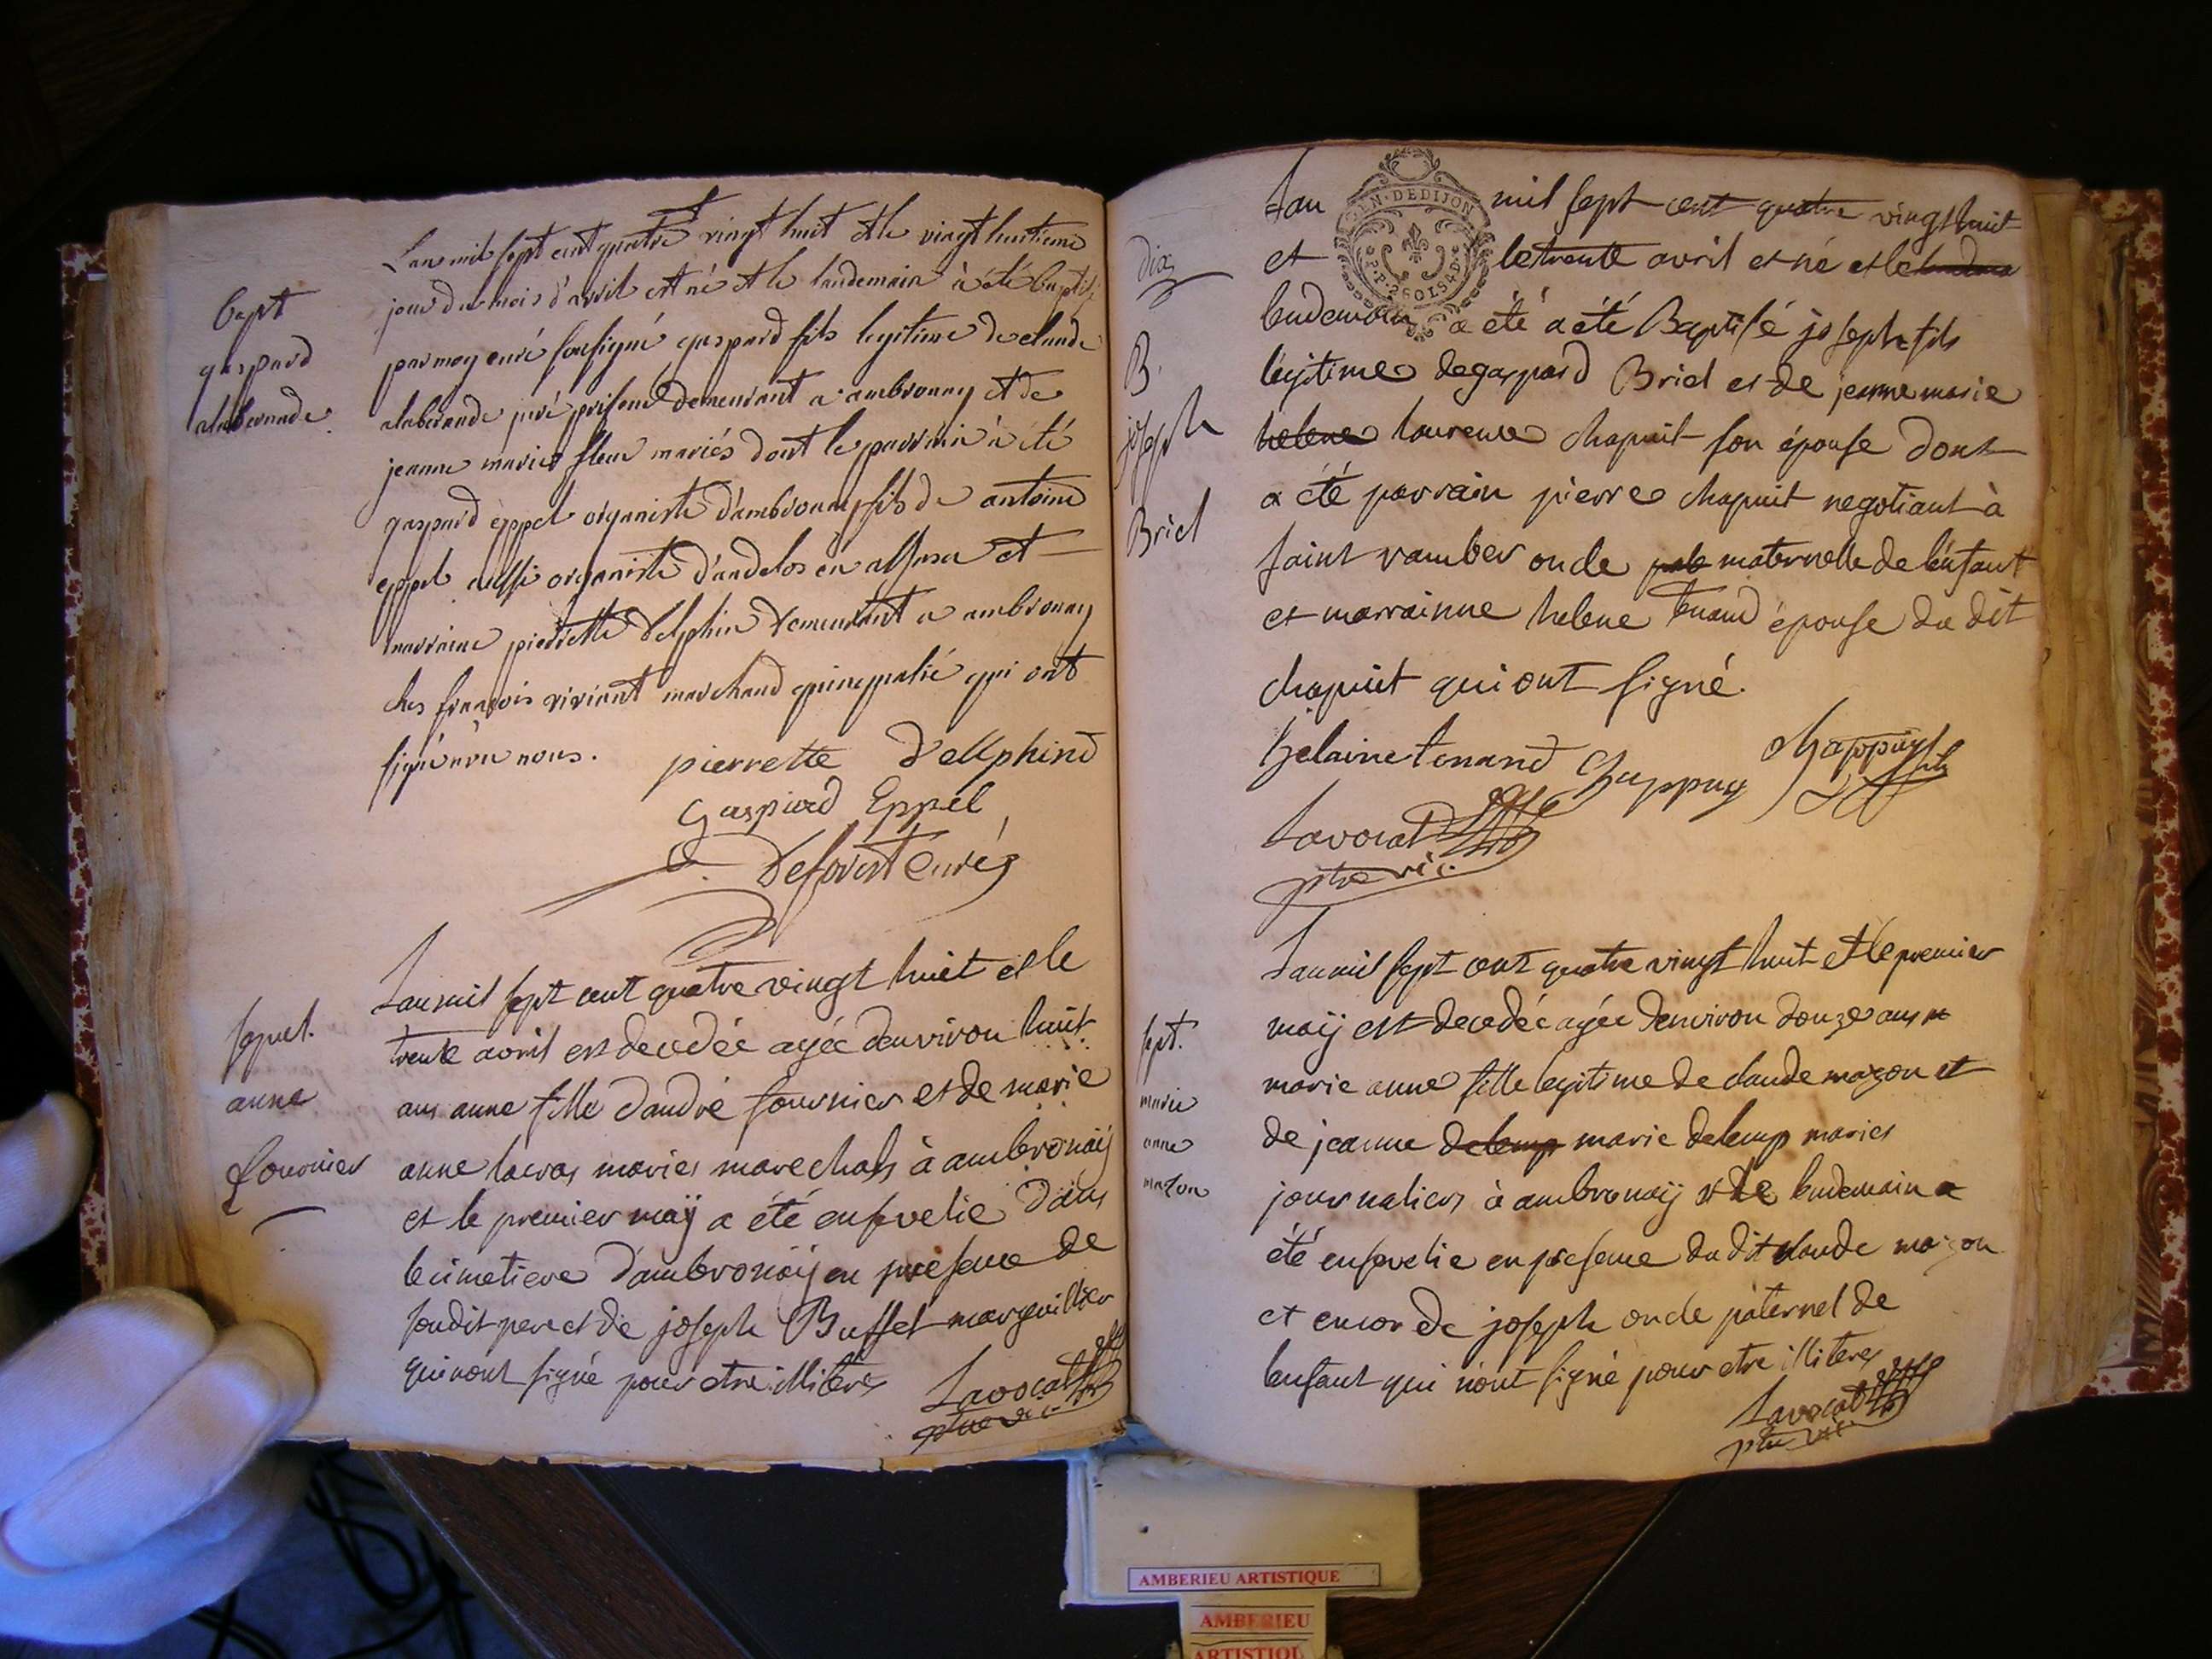 Bapt
gaspard
alabernarde
L'an mil sept cent quatre vingt huit et le vingt huitieme
jour du mois d'avril est né et le landemain à été baptisé
par moy curé sousigné gaspard fils legitime de claude
alaberarde juré priseur demeurant a ambronay et de
jeanne marie fleur mariés dont le parrain à été
gaspard eppel organiste d'ambronay fils de antoine
eppel aussi organiste d'andelos en alsasse et
marraine pierrette delphin demeurant a ambronay
ches françois viviant marchand qui ont
signé avec nous.
pierrette Dellphind
Gaspard Eppel
Deforest curé
sepul.
anne
fournier
L'an mil sept cent quatre vingt huit et le
trente avril est decedée agée denviron huit
ans anne fille dandré fournier et de marie
anne lacras mariés marechals à ambronaÿ
et le premier maÿ a été ensevelie dans
le cimetiere d'ambronaÿ en présence de
sondit pere et de joseph Buffet marguillier
qui n'ont signé pour etre illiteres
Lavocat
ptre vic.
dix
B.
joseph
Briel
GEN. DEDIJON
Lan mil sept cent quatre vingt huit
et le trente avril est né et le
lendemain a été a été Baptisé joseph fils
légitime de gaspard Briel et de jeanne marie
helene laurence chapuit son épouse dont
a été parrain pierre chapuit negotiant à
saint rambert oncle maternelle de l'enfant
et marrainne helene tenand épouse du dit
chapuit qui ont signé.
helaine tenand Chappuy Chappuys fils
Lavocat
ptre vic.
sept.
marie
anne
mazon
L'an mil sept cent quatre vingt huit et le premier
maÿ est decedée agée denviron douze ans
marie anne fille legitime de claude mazon et
de jeanne delemp marie delemp mariés
journaliers à ambronaÿ et le lendemain a
été ensevelie en présence du dit claude mazon
et encor de joseph oncle paternel de
lenfant qui n'ont signé pour etre illiteres
Lavocat
ptre vic.
AMBERIEU ARTISTIQUE
AMBERIEU
ARTISTIQU